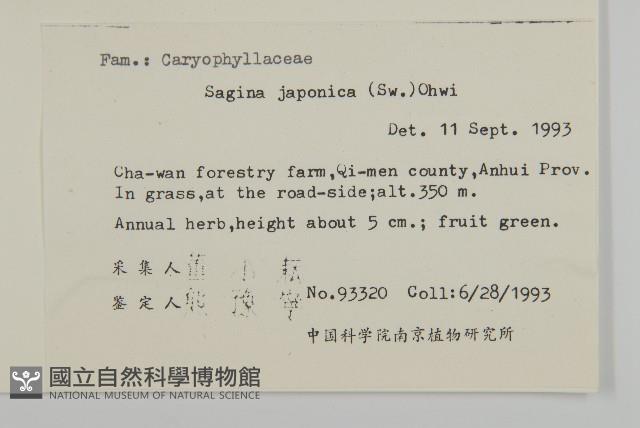 Fam.: Caryophyllaceae
Sagina japonica (Sw.)Ohwi
Det. 11 Sept. 1993
Cha-wan forestry farm,Qi-men county,Anhui Prov.
In grass,at the road-side;alt.350 m.
Annual herb,height about 5 cm.; fruit green.
采集人
鉴定人
No.93320 Coll:6/28/1993
中国科学院南京植物研究所
國立自然科學博物館
NATIONAL MUSEUM OF NATURAL SCIENCE